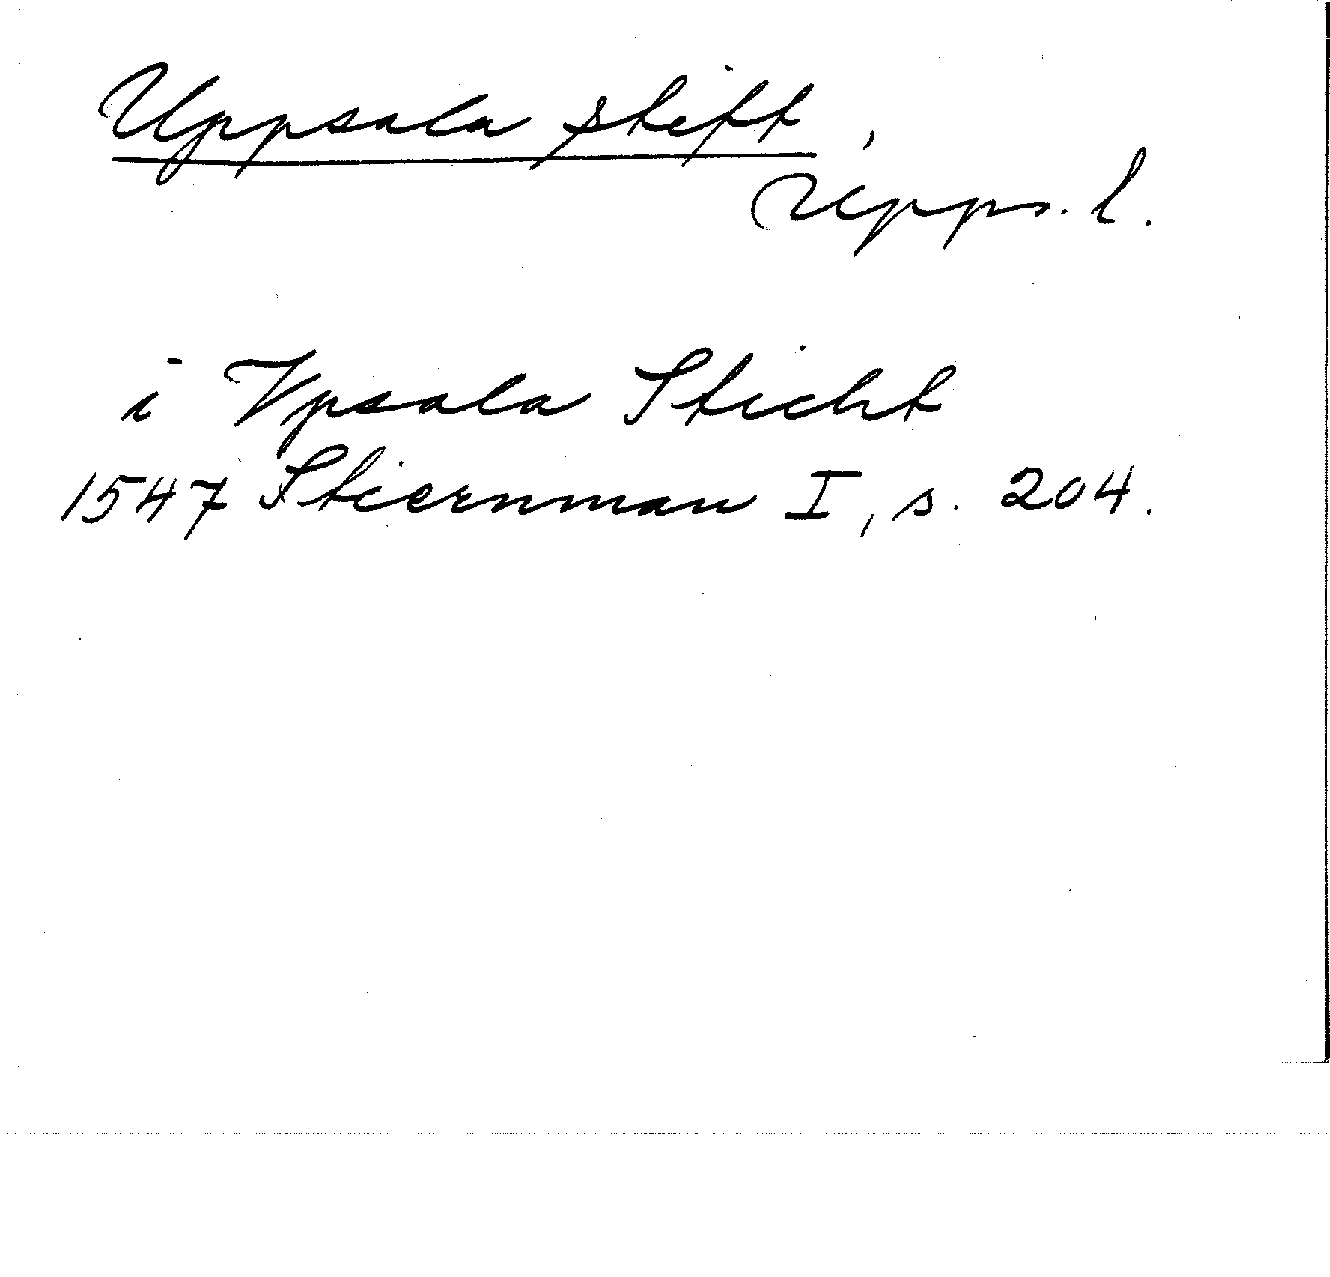 Uppsala stift,
Upps. l.
i Vpsala Sticht
1547 Stiernman I, s. 204.